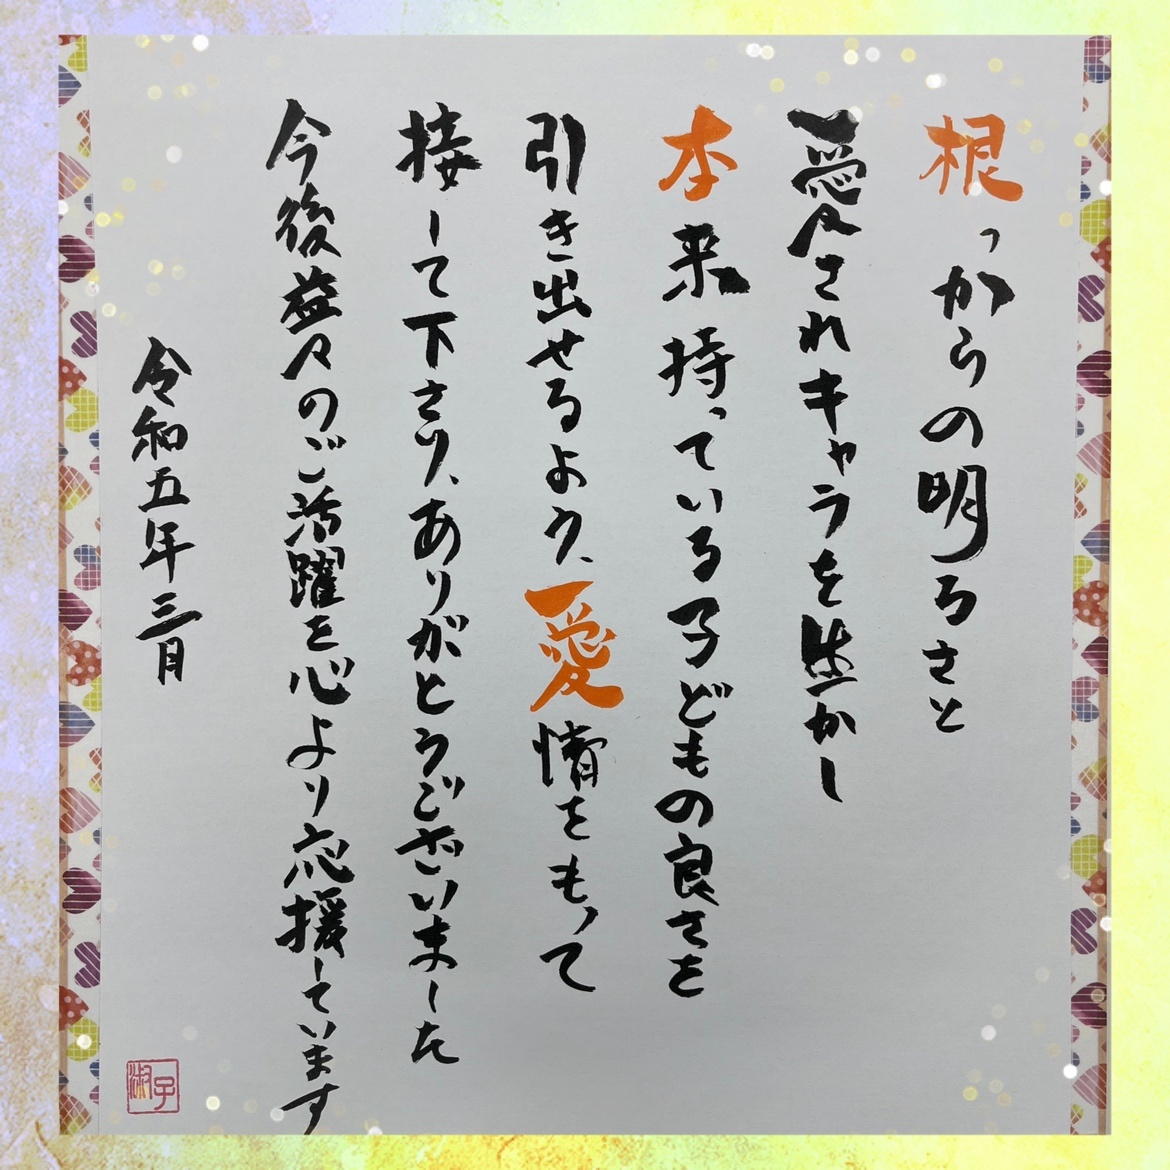 根っからの明るさと
愛されキャラを生かし
本来持っている子どもの良さを
引き出せるよう、愛情をもって
接して下さり、ありがとうございました
今後益々のご活躍を心より応援しています
令和五年三月
淑子